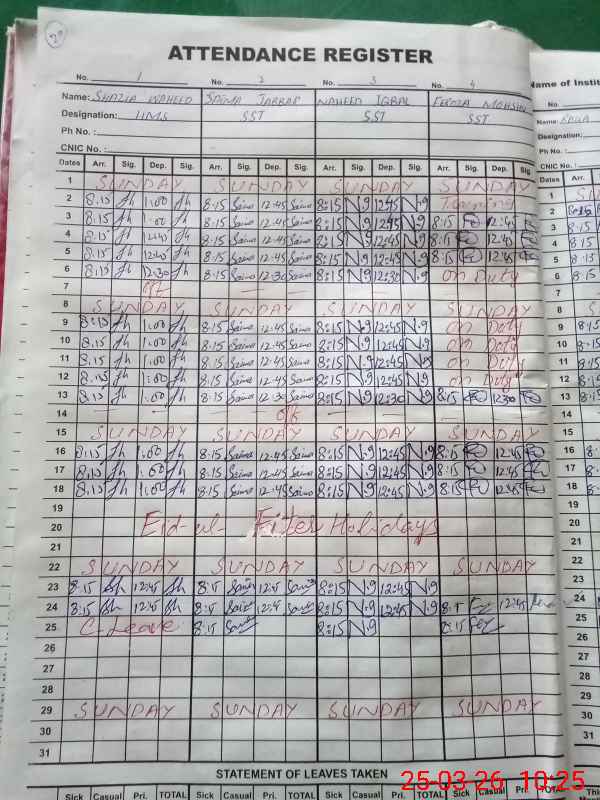 29
ATTENDANCE REGISTER
No. 1 No. 2 No. 3 No. 4
Name: SHAZIA WAHEED SAIMA JABBAR NAHEED IQBAL MOHSIN
Designation: SST SST SST
Ph No. :
CNIC No. :
Dates Arr. Sig. Dep. Sig. Arr. Sig. Dep. Sig. Arr. Sig. Dep. Sig. Arr. Sig. Dep. Sig.
1 SUNDAY SUNDAY SUNDAY SUNDAY
2 8.15 Sh 1:00 Sh 8:15 Saima 12:45 Saima 8:15 N.9 12:45 N.9 Training
3 8.15 Sh 1:00 Sh 8:15 Saima 12:45 Saima 8:15 N.9 12:45 N.9 8:15 12:45
4 8.15 Sh 12:40 Sh 8:15 Saima 12:45 Saima 8:15 N.9 12:45 N.9 8:15 12:45
5 8.15 Sh 12:40 Sh 8:15 Saima 12:45 Saima 8:15 N.9 12:45 N.9 8:15 12:45
6 8.15 Sh 12:30 Sh 8:15 Saima 12:30 Saima 8:15 N.9 12:30 N.9 On Duty
7 off
8 SUNDAY SUNDAY SUNDAY SUNDAY
9 8:15 Sh 1:00 Sh 8:15 Saima 12:45 Saima 8:15 N.9 12:45 N.9 On Duty
10 8.15 Sh 1:00 Sh 8:15 Saima 12:45 Saima 8:15 N.9 12:45 N.9 On Duty
11 8.15 Sh 1:00 Sh 8:15 Saima 12:45 Saima 8:15 N.9 12:45 N.9 On Duty
12 8.15 Sh 1:00 Sh 8:15 Saima 12:45 Saima 8:15 N.9 12:45 N.9 On Duty
13 8.15 Sh 1:00 Sh 8:15 Saima 12:30 Saima 8:15 N.9 12:30 N.9 8:15 12:30
14 off
15 SUNDAY SUNDAY SUNDAY SUNDAY
16 8.15 Sh 1:00 Sh 8:15 Saima 12:45 Saima 8:15 N.9 12:45 N.9 8:15 12:45
17 8.15 Sh 1:00 Sh 8:15 Saima 12:45 Saima 8:15 N.9 12:45 N.9 8:15 12:45
18 8.15 Sh 1:00 Sh 8:15 Saima 12:45 Saima 8:15 N.9 12:45 N.9 8:15 12:45
19
20 Eid-ul-Fiter Holidays
21
22 SUNDAY SUNDAY SUNDAY SUNDAY
23 8:15 Sh 12:45 Sh 8:15 12:45 8:15 N.9 12:45 N.9
24 8:15 Sh 12:45 Sh 8:15 12:45 8:15 N.9 12:45 N.9 12:45
25 C-Leave 8:15 8:15 N.9 8:15
26
27
28
29 SUNDAY SUNDAY SUNDAY SUNDAY
30
31
STATEMENT OF LEAVES TAKEN
Sick Casual Pri. TOTAL Sick Casual Pri. TOTAL Sick Casual Pri. TOTAL Sick Casual Pri. TOTAL
Name of Instit
No.
Name:
Designation:
Ph No. :
CNIC No. :
Dates Arr.
1
2
3 8:15
4 8:15
5 8:15
6 8:15
7
8
9
10
11
12
13
14
15
16
17
18
19
20
21
22
23
24
25
26
27
28
29
30
31
25-03-26 10:25